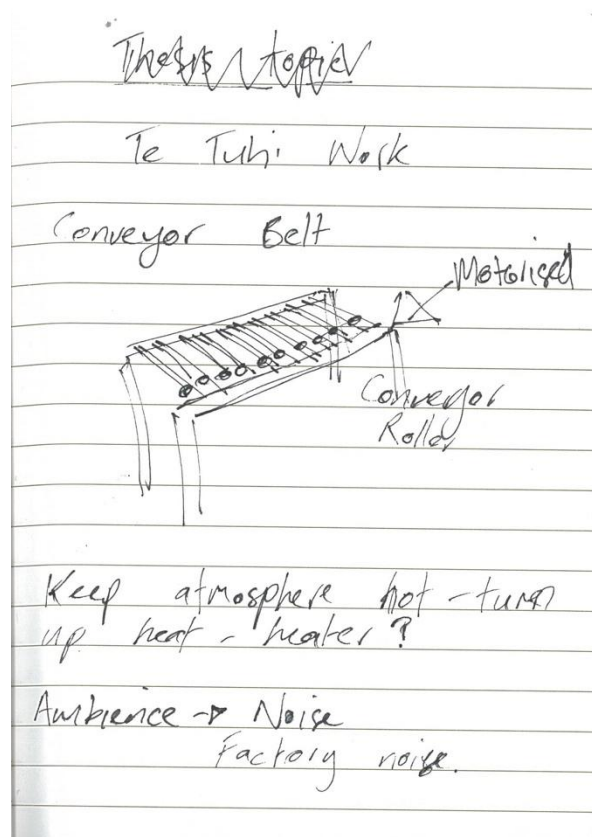 Thesis topic
Te Tuhi Work
Conveyor Belt
Motorised
Conveyor
Roller
Keep atmosphere hot - turn
up heat - heater?
Ambience → Noise
Factory noise.